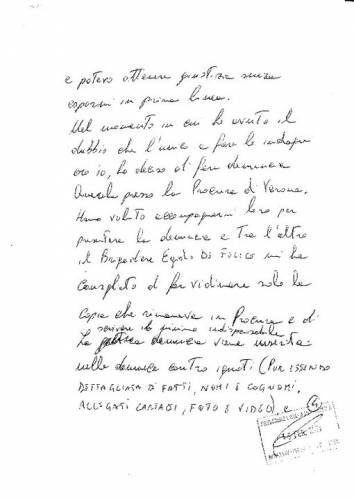 e potevo ottenere giustizia senza
espormi in prima linea.
Nel momento in cui ho avuto il
dubbio che l'unico a fare le indagini
ero io, ho deciso di fare denuncia
Querela presso la Procura di Verona.
Hanno voluto accompagnarmi loro per
presentare la denuncia e tra l'altro
il Brigadiere Egidio DI FELICE mi ha
consigliato di far vidimare solo la
copia che rimaneva in Procura e di
scrivere di prima indispensabile
La denuncia viene inserita
nelle denunce contro ignoti (PUR ESSENDO
DETTAGLIATA DI FATTI, NOMI E COGNOMI,
ALLEGATI CARTACEI, FOTO E VIDEO) e 4